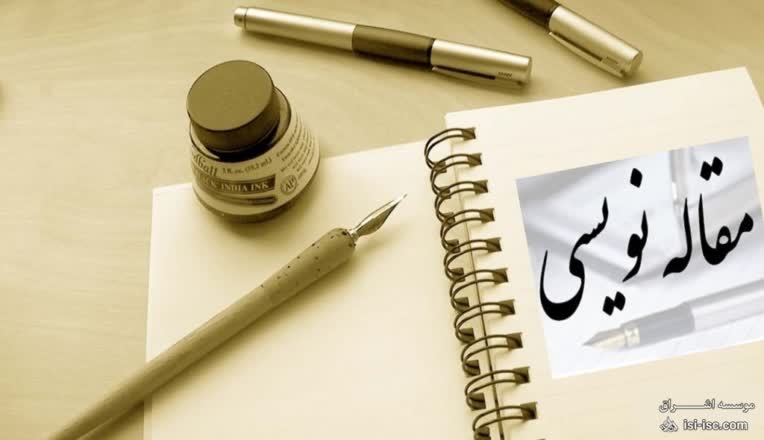 مقاله نویسی
INDIA INK
موسسه اشراق
isi-isc.com